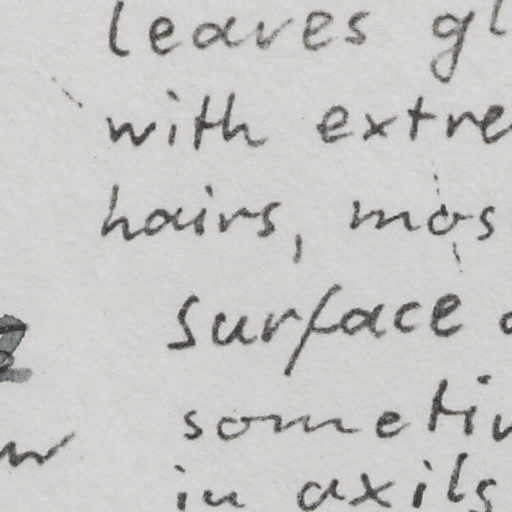 leaves gl
with extre
hairs, mos
surface
sometim
in axils